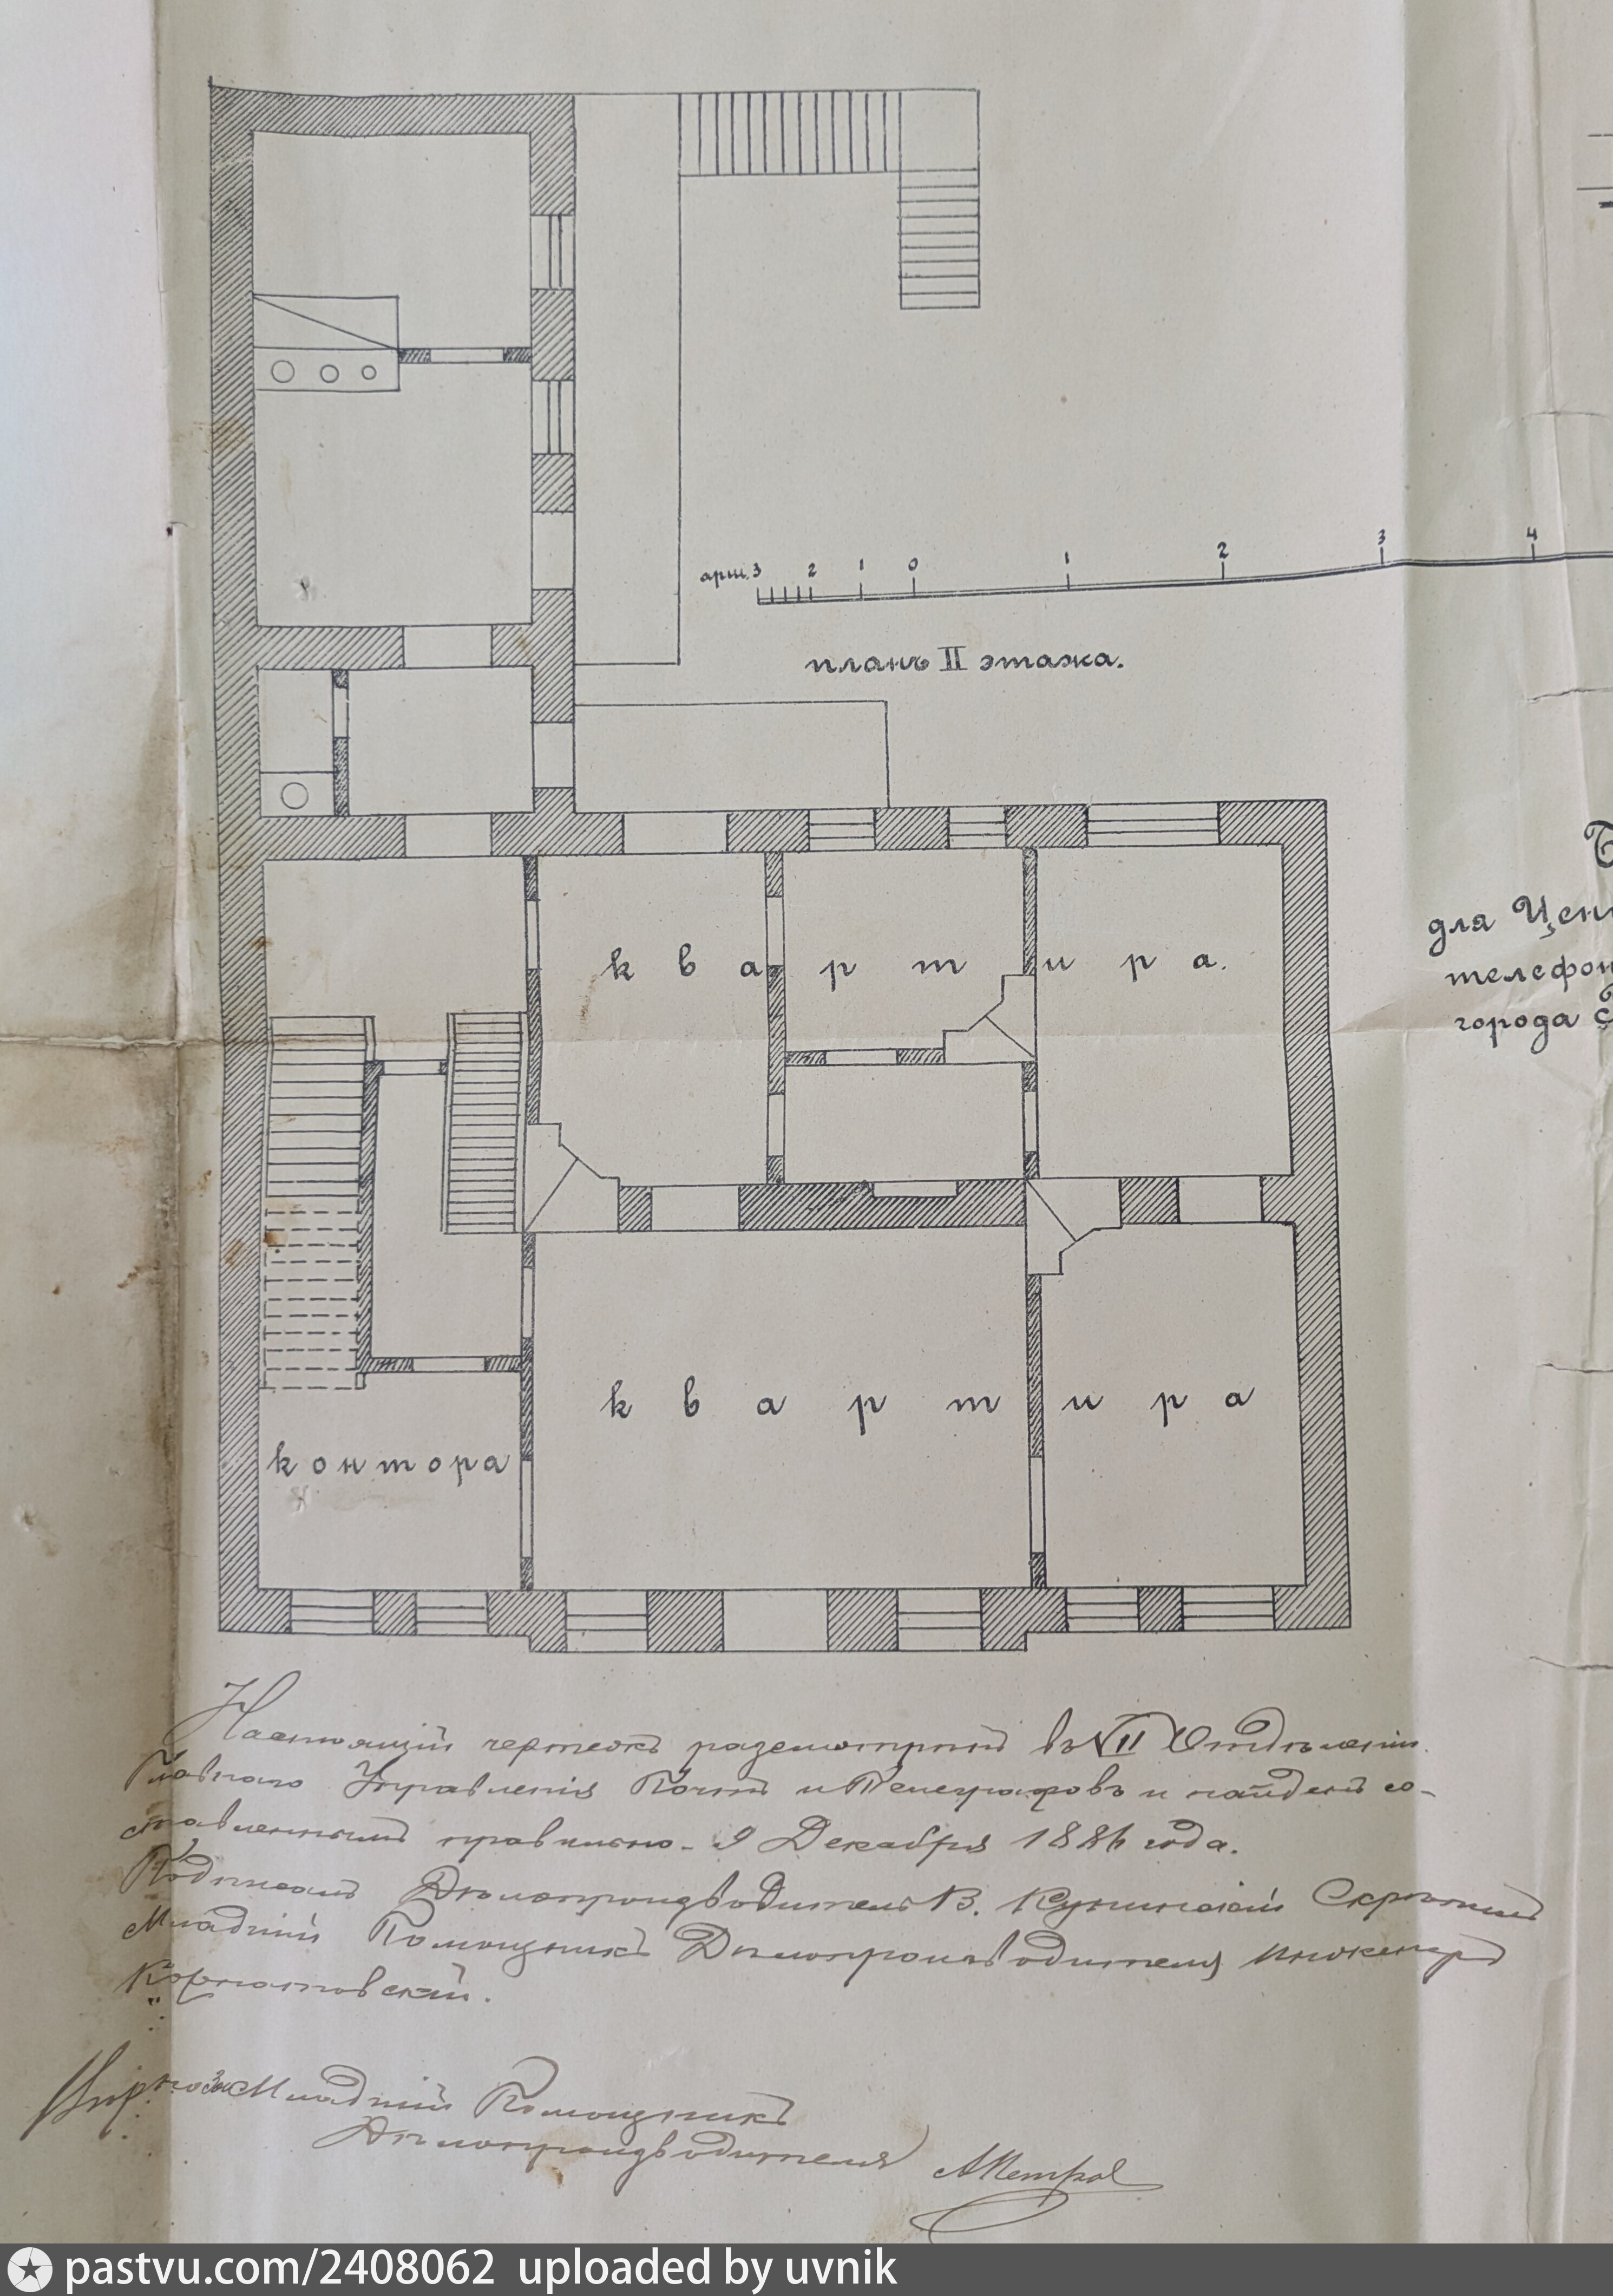 арш. 3 2 1 0 1 2 3 4
планъ II этажа.
для Цен
телефон
города
квартира.
квартира
контора
Настоящий чертежъ разсмотренъ въ VII Отдѣленіи
Главнаго Управленія Почтъ и Телеграфовъ и найденъ со-
ставленнымъ правильно. 9 Декабря 1886 года.
Подписалъ Дѣлопроизводитель В. Скрѣпилъ
Младшій Помощникъ Дѣлопроизводителя, Инженеръ
Вѣрно: За Младшій Помощникъ
Дѣлопроизводителя
pastvu.com/2408062 uploaded by uvnik